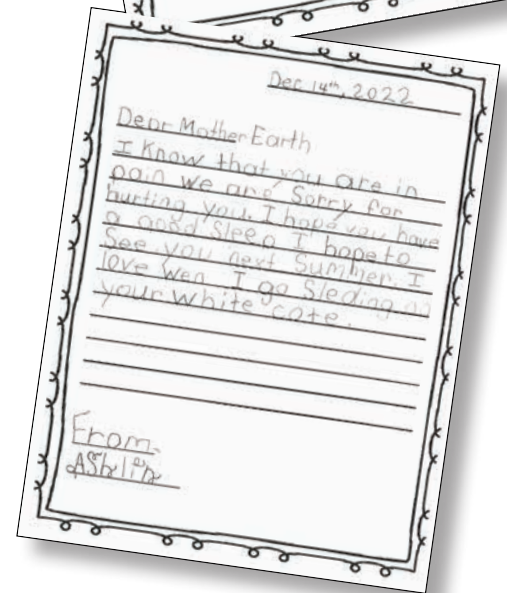 Dec 14th, 2022
Dear Mother Earth
I Know that you are in
pain we are Sorry for
hurting you. I hope you have
a good Sleep I hope to
See you next Summer. I
love wen I go Sleding on
your white cote.
From
AShlin